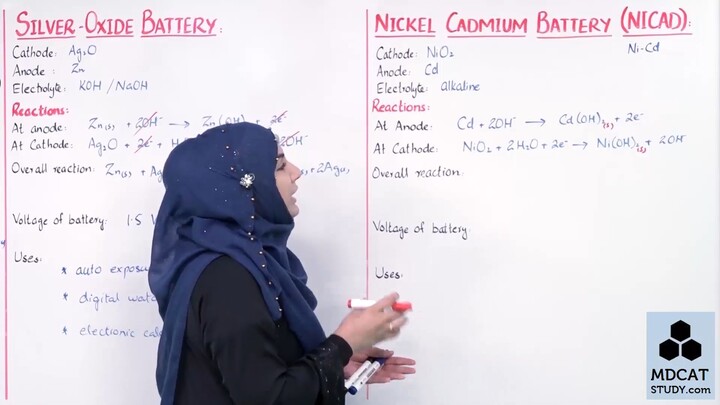 SILVER-OXIDE BATTERY:
Cathode: Ag₂O
Anode: Zn
Electrolyte: KOH/NaOH
Reactions:
At anode: Zn(s) + 2OH⁻ → Zn(OH) + 2e⁻
At Cathode: Ag₂O + 2e⁻ + H 2OH⁻
Overall reaction: Zn(s) + Ag + 2Ag(s)
Voltage of battery: 1.5
Uses:
* auto
* digital
* electionic
NICKEL CADMIUM BATTERY (NICAD):
Cathode: NiO₂ Ni-Cd
Anode: Cd
Electrolyte: alkaline
Reactions:
At Anode: Cd + 2OH⁻ → Cd(OH)₂(s) + 2e⁻
At Cathode: NiO₂ + 2H₂O + 2e⁻ → Ni(OH)₂(s) + 2OH⁻
Overall reaction:
Voltage of battery:
Uses:
MDCAT
STUDY.com